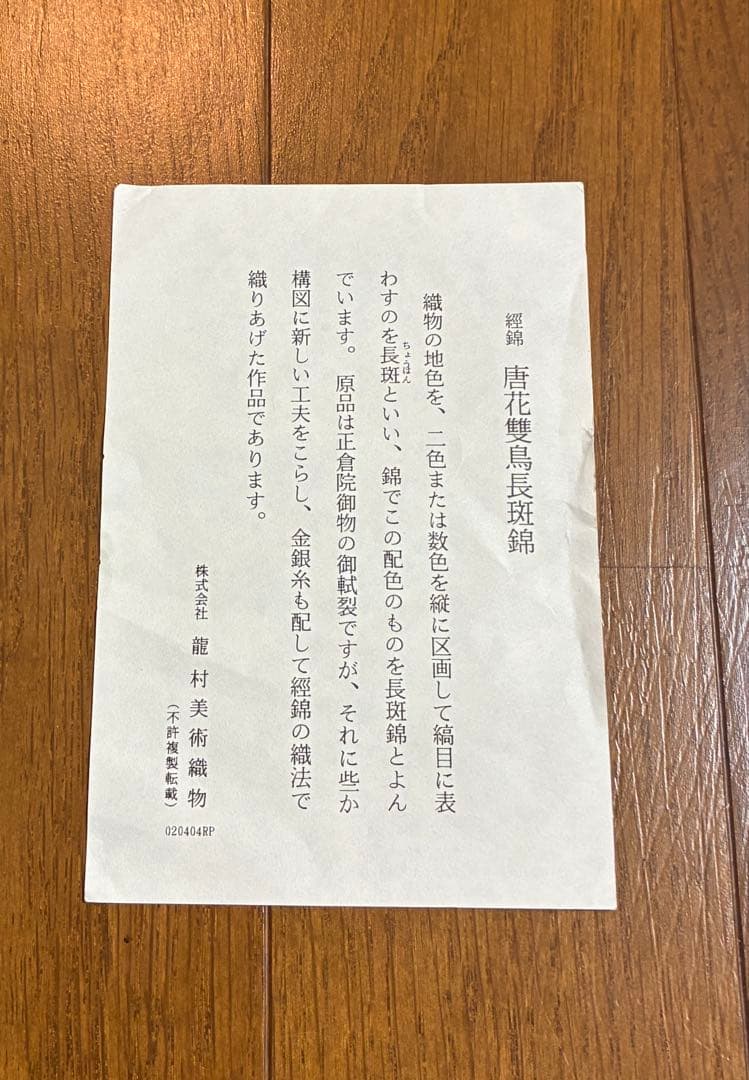 經錦 唐花雙鳥長斑錦
織物の地色を、二色または数色を縦に区画して縞目に表
わすのを長斑といい、錦でこの配色のものを長斑錦とよん
ちょうはん
でいます。原品は正倉院御物の御軾裂ですが、それに些か
構図に新しい工夫をこらし、金銀糸も配して經錦の織法で
織りあげた作品であります。
株式会社 龍村美術織物
(不許複製転載)
020404RP